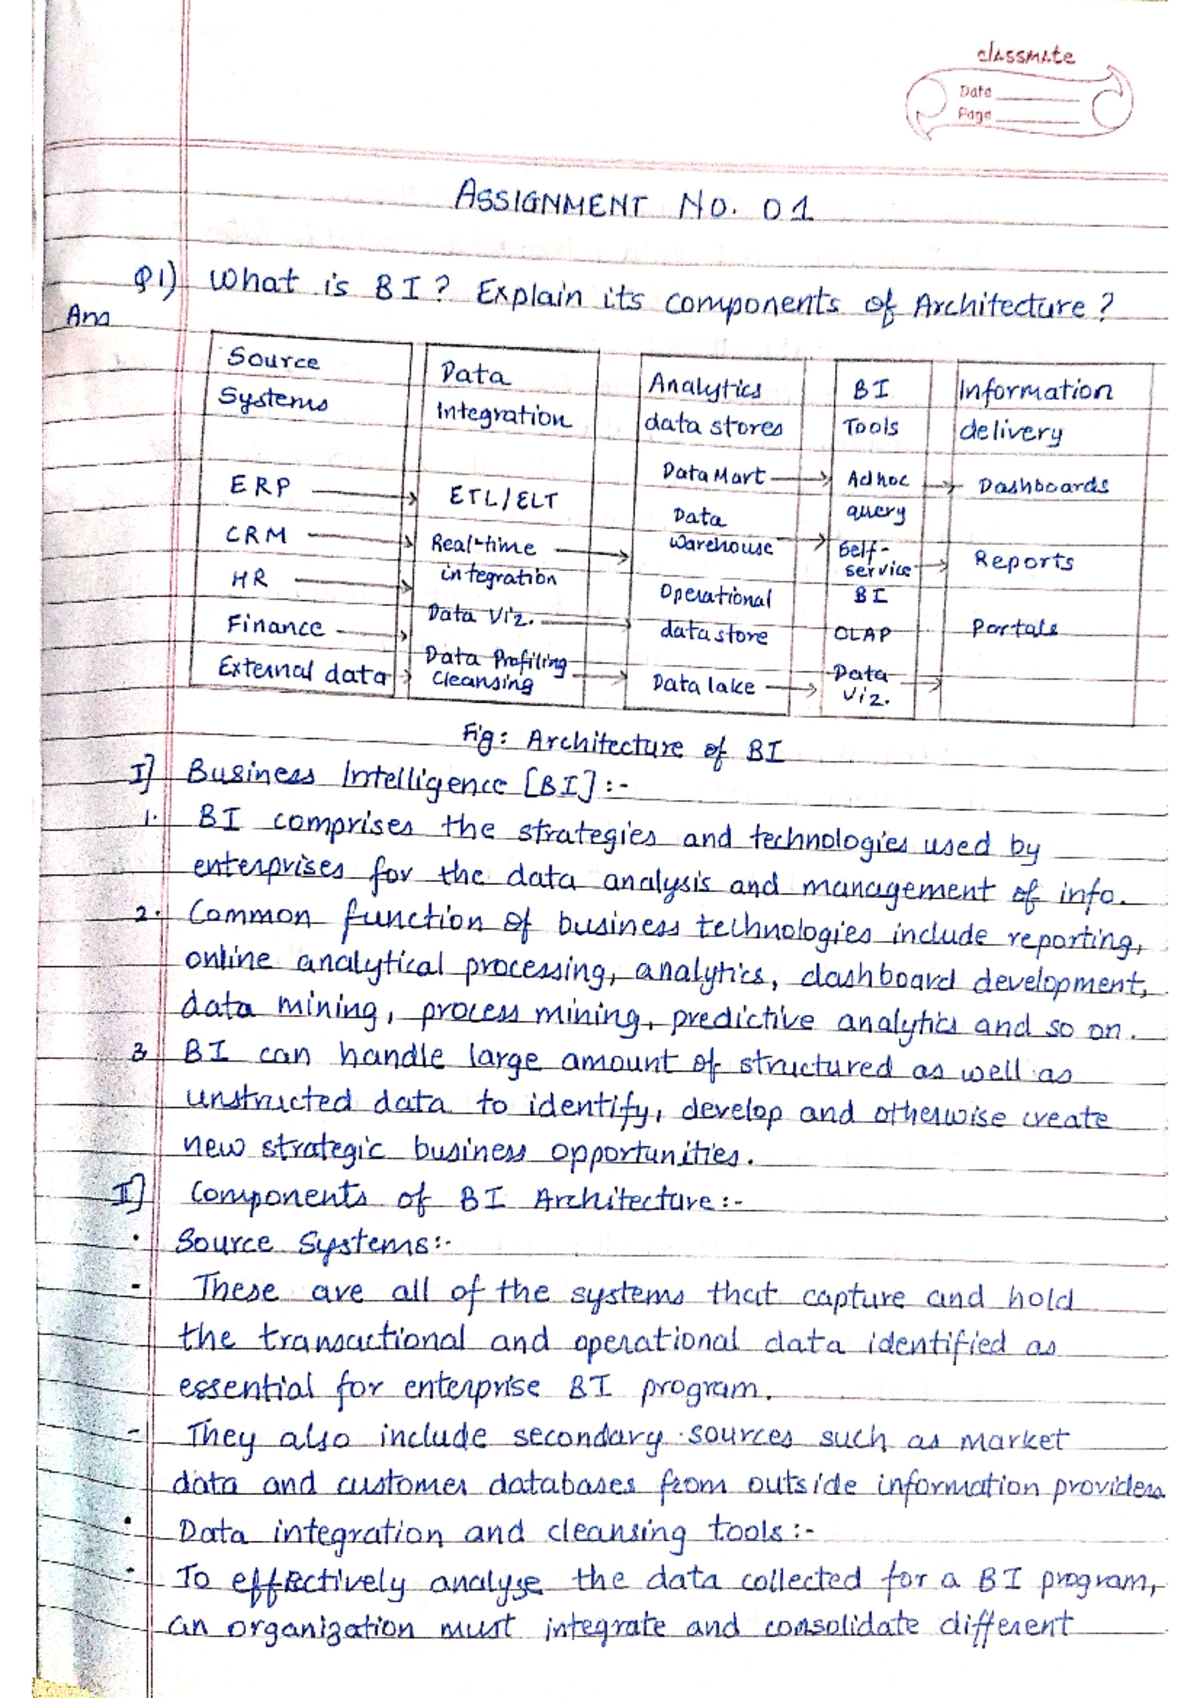 classmate
Date
Page
ASSIGNMENT NO. 01
Q1) What is BI? Explain its components of Architecture?
Ans
Source Systems
Data Integration
Analytics data stores
BI Tools
Information delivery
ERP
CRM
HR
Finance
External data
ETL/ELT
Real-time integration
Data Viz.
Data Profiling Cleansing
Data Mart
Data warehouse
Operational data store
Data lake
Adhoc query
Self-service BI
OLAP
Data Viz.
Dashboards
Reports
Portals
Fig: Architecture of BI
I] Business Intelligence [BI] :-
1. BI comprises the strategies and technologies used by
enterprises for the data analysis and management of info.
2. Common function of business technologies include reporting,
online analytical processing, analytics, dashboard development,
data mining, process mining, predictive analytics and so on.
3 BI can handle large amount of structured as well as
unstructed data to identify, develop and otherwise create
new strategic business opportunities.
II] Components of BI Architecture :-
• Source Systems :-
- These are all of the systems that capture and hold
the transactional and operational data identified as
essential for enterprise BI program.
- They also include secondary sources such as market
data and customer databases from outside information providers
• Data integration and cleansing tools :-
- To effectively analyse the data collected for a BI program,
an organization must integrate and consolidate different